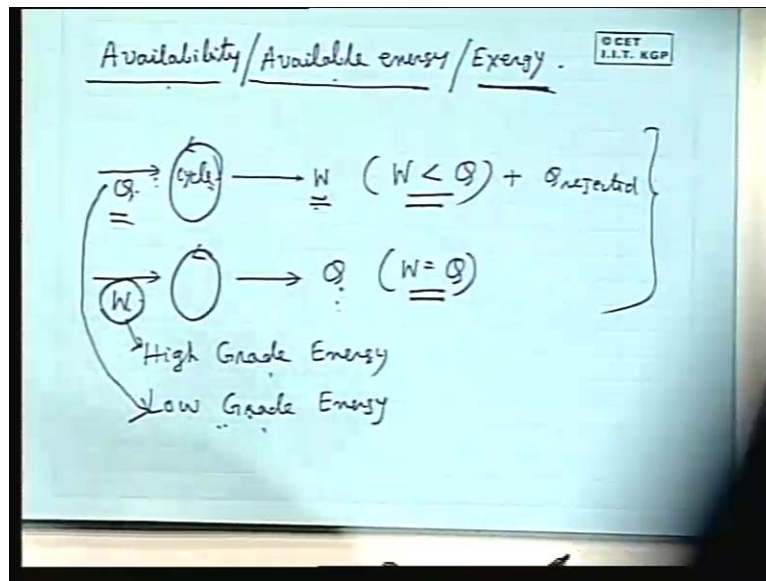 Availability/Available energy/Exergy.
© CET
I.I.T. KGP
Q. cycle W (W < Q) + Q rejected
W Q (W = Q)
High Grade Energy
Low Grade Energy